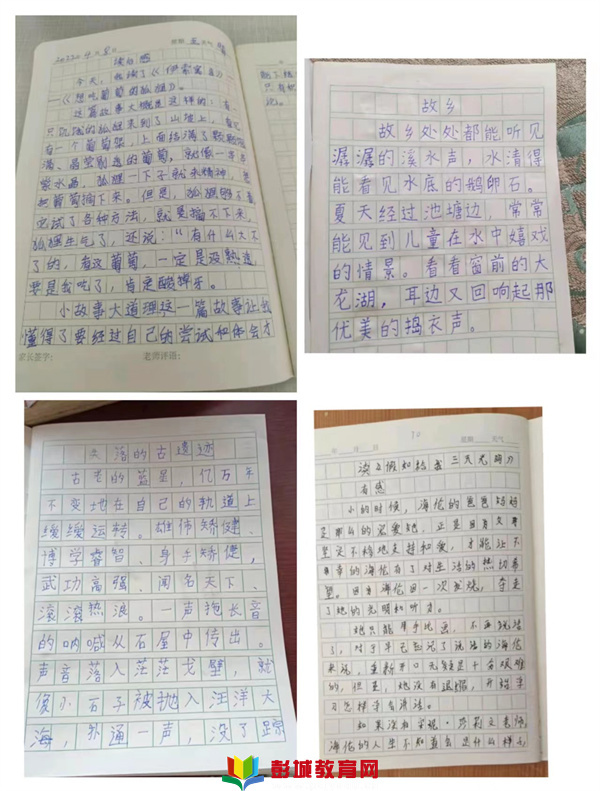 2022年4月8日 星期五 天气 晴
读后感
今天，我读了《伊索寓言》—
—《想吃葡萄的狐狸》。
这篇故事大概是这样的：有
只饥饿的狐狸来到了山坡上，看见
有一个葡萄架，上面结满了颗颗饱
满、晶莹剔透的葡萄，就像一串串
紫水晶，狐狸一下子就来精神，想
把葡萄摘下来。但是，狐狸够不着
尝试了各种方法，就是摘不下来，
狐狸生气了，还说：“有什么大不
了的，看这葡萄，一定是没熟透，
要是我吃了，肯定酸掉牙。
小故事大道理这一篇故事让我
懂得了要经过自己的尝试和体会才
家长签字： 老师评语：
故乡
故乡处处都能听见
潺潺的溪水声，水清得
能看见水底的鹅卵石。
夏天经过池塘边，常常
能见到儿童在水中嬉戏
的情景。看看窗前的大
龙湖，耳边又回响起那
优美的捣衣声。
失落的古遗迹
古老的蓝星，亿万年
不变地在自己的轨道上
缓缓运转。雄伟矫健、
博学睿智、身手矫健，
武功高强、闻名天下、
滚滚热浪。一声拖长音
的呐喊从石屋中传出。
声音落入茫茫戈壁，就
像小石子被抛入汪洋大
海，扑通一声，没了踪
年 月 日 星期 天气
读《假如给我三天光明》
有感
小的时候，海伦的爸爸妈妈
是那么的宠爱她，正是因着父母
坚定不移地支持和爱，才能让不
幸的海伦有了对生活的热切希
望。因为海伦因一次疾病，夺走
了她的光明和听力。
她只能用手比画，不再说话
了，对于早已忘记了说话的海伦
来说，重新开口无疑是十分艰难
的，但是，她没有退缩，开始学
习怎样子有讲话。
如果没有安妮·莎莉文老师
海伦的人生不知道会是什么样子
彭城教育网